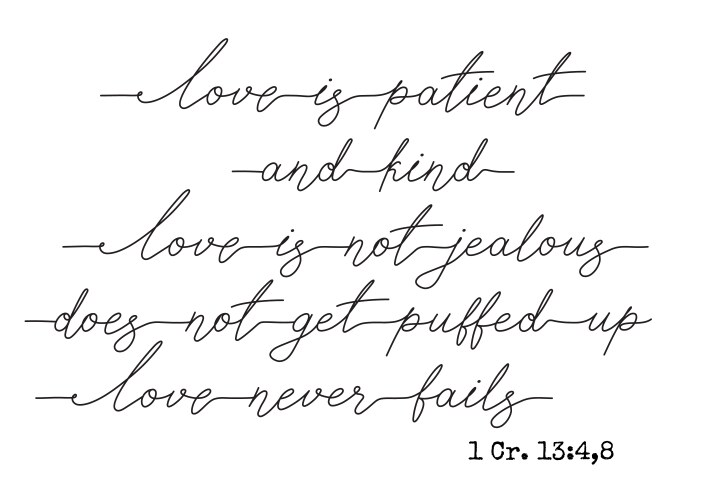 love is patient
and kind
love is not jealous
does not get puffed up
love never fails
1 Cr. 13:4,8